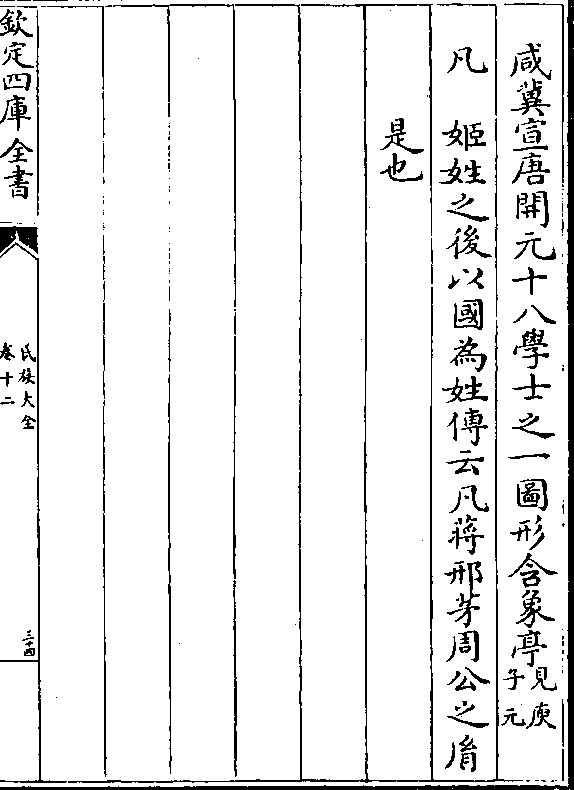 咸冀宣唐開元十八學士之一圖形含象亭見庾子元
凡　姬姓之後以國為姓傳云凡蔣邢茅周公之胤
是也
欽定四庫全書
氏族大全
卷十二
三十四